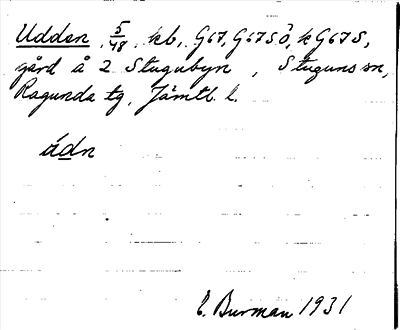 Udden, 5/48, kb, G67, G67SÖ, k G67S,
gård å 2 Stugubyn, Stuguns sn,
Ragunda tg, Jämtl. l.
ádn
E. Burman 1931